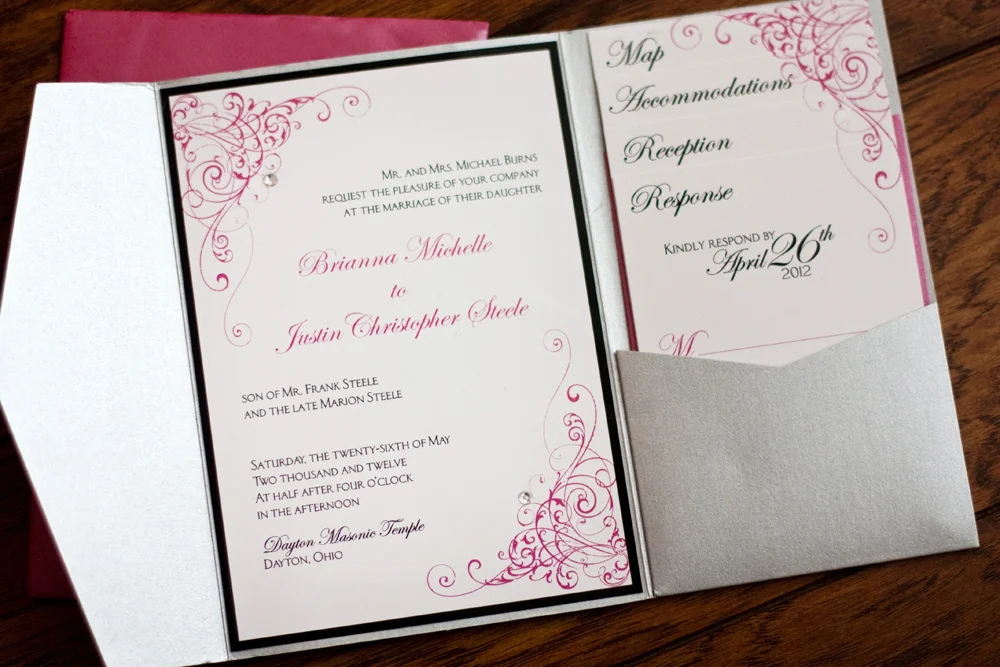 Mr. and Mrs. Michael Burns
request the pleasure of your company
at the marriage of their daughter
Brianna Michelle
to
Justin Christopher Steele
son of Mr. Frank Steele
and the late Marion Steele
Saturday, the twenty-sixth of May
Two thousand and twelve
At half after four o'clock
in the afternoon
Dayton Masonic Temple
Dayton, Ohio
Map
Accommodations
Reception
Response
Kindly respond by
April 26th
2012
M